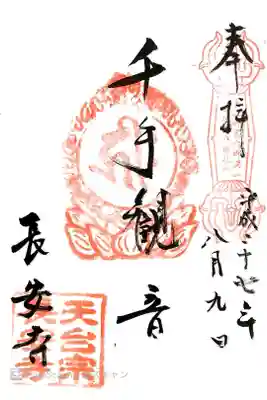 奉拝
平成二十七年
八月九日
千手観音
長安寺
天台宗
長安寺